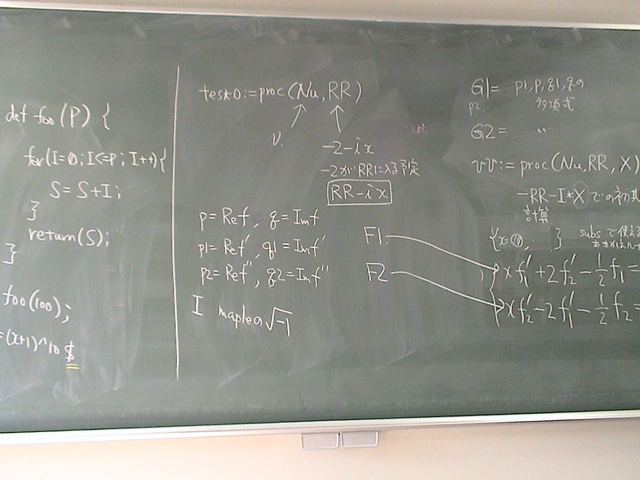 def foo(P) {
for(I=0; I<=P; I++){
S=S+I;
}
return(S);
}
foo(100);
=(x+1)^10 $
test0:=proc(Nu,RR)
ν
-2-ix
-2がRRに入る予定
RR-ix
p=Ref, q=Imf
p1=Ref', q1=Imf'
p2=Ref'', q2=Imf''
I mapleの√-1
F1
F2
G1= p1,p,q1,qの
p2. 多項式
G2= 〃
vv:=proc(Nu,RR,X)
-RR-I*X での
計算
{x=
} subsで
xf1'+2f2'-1/2f1=
xf2'-2f1'-1/2f2=